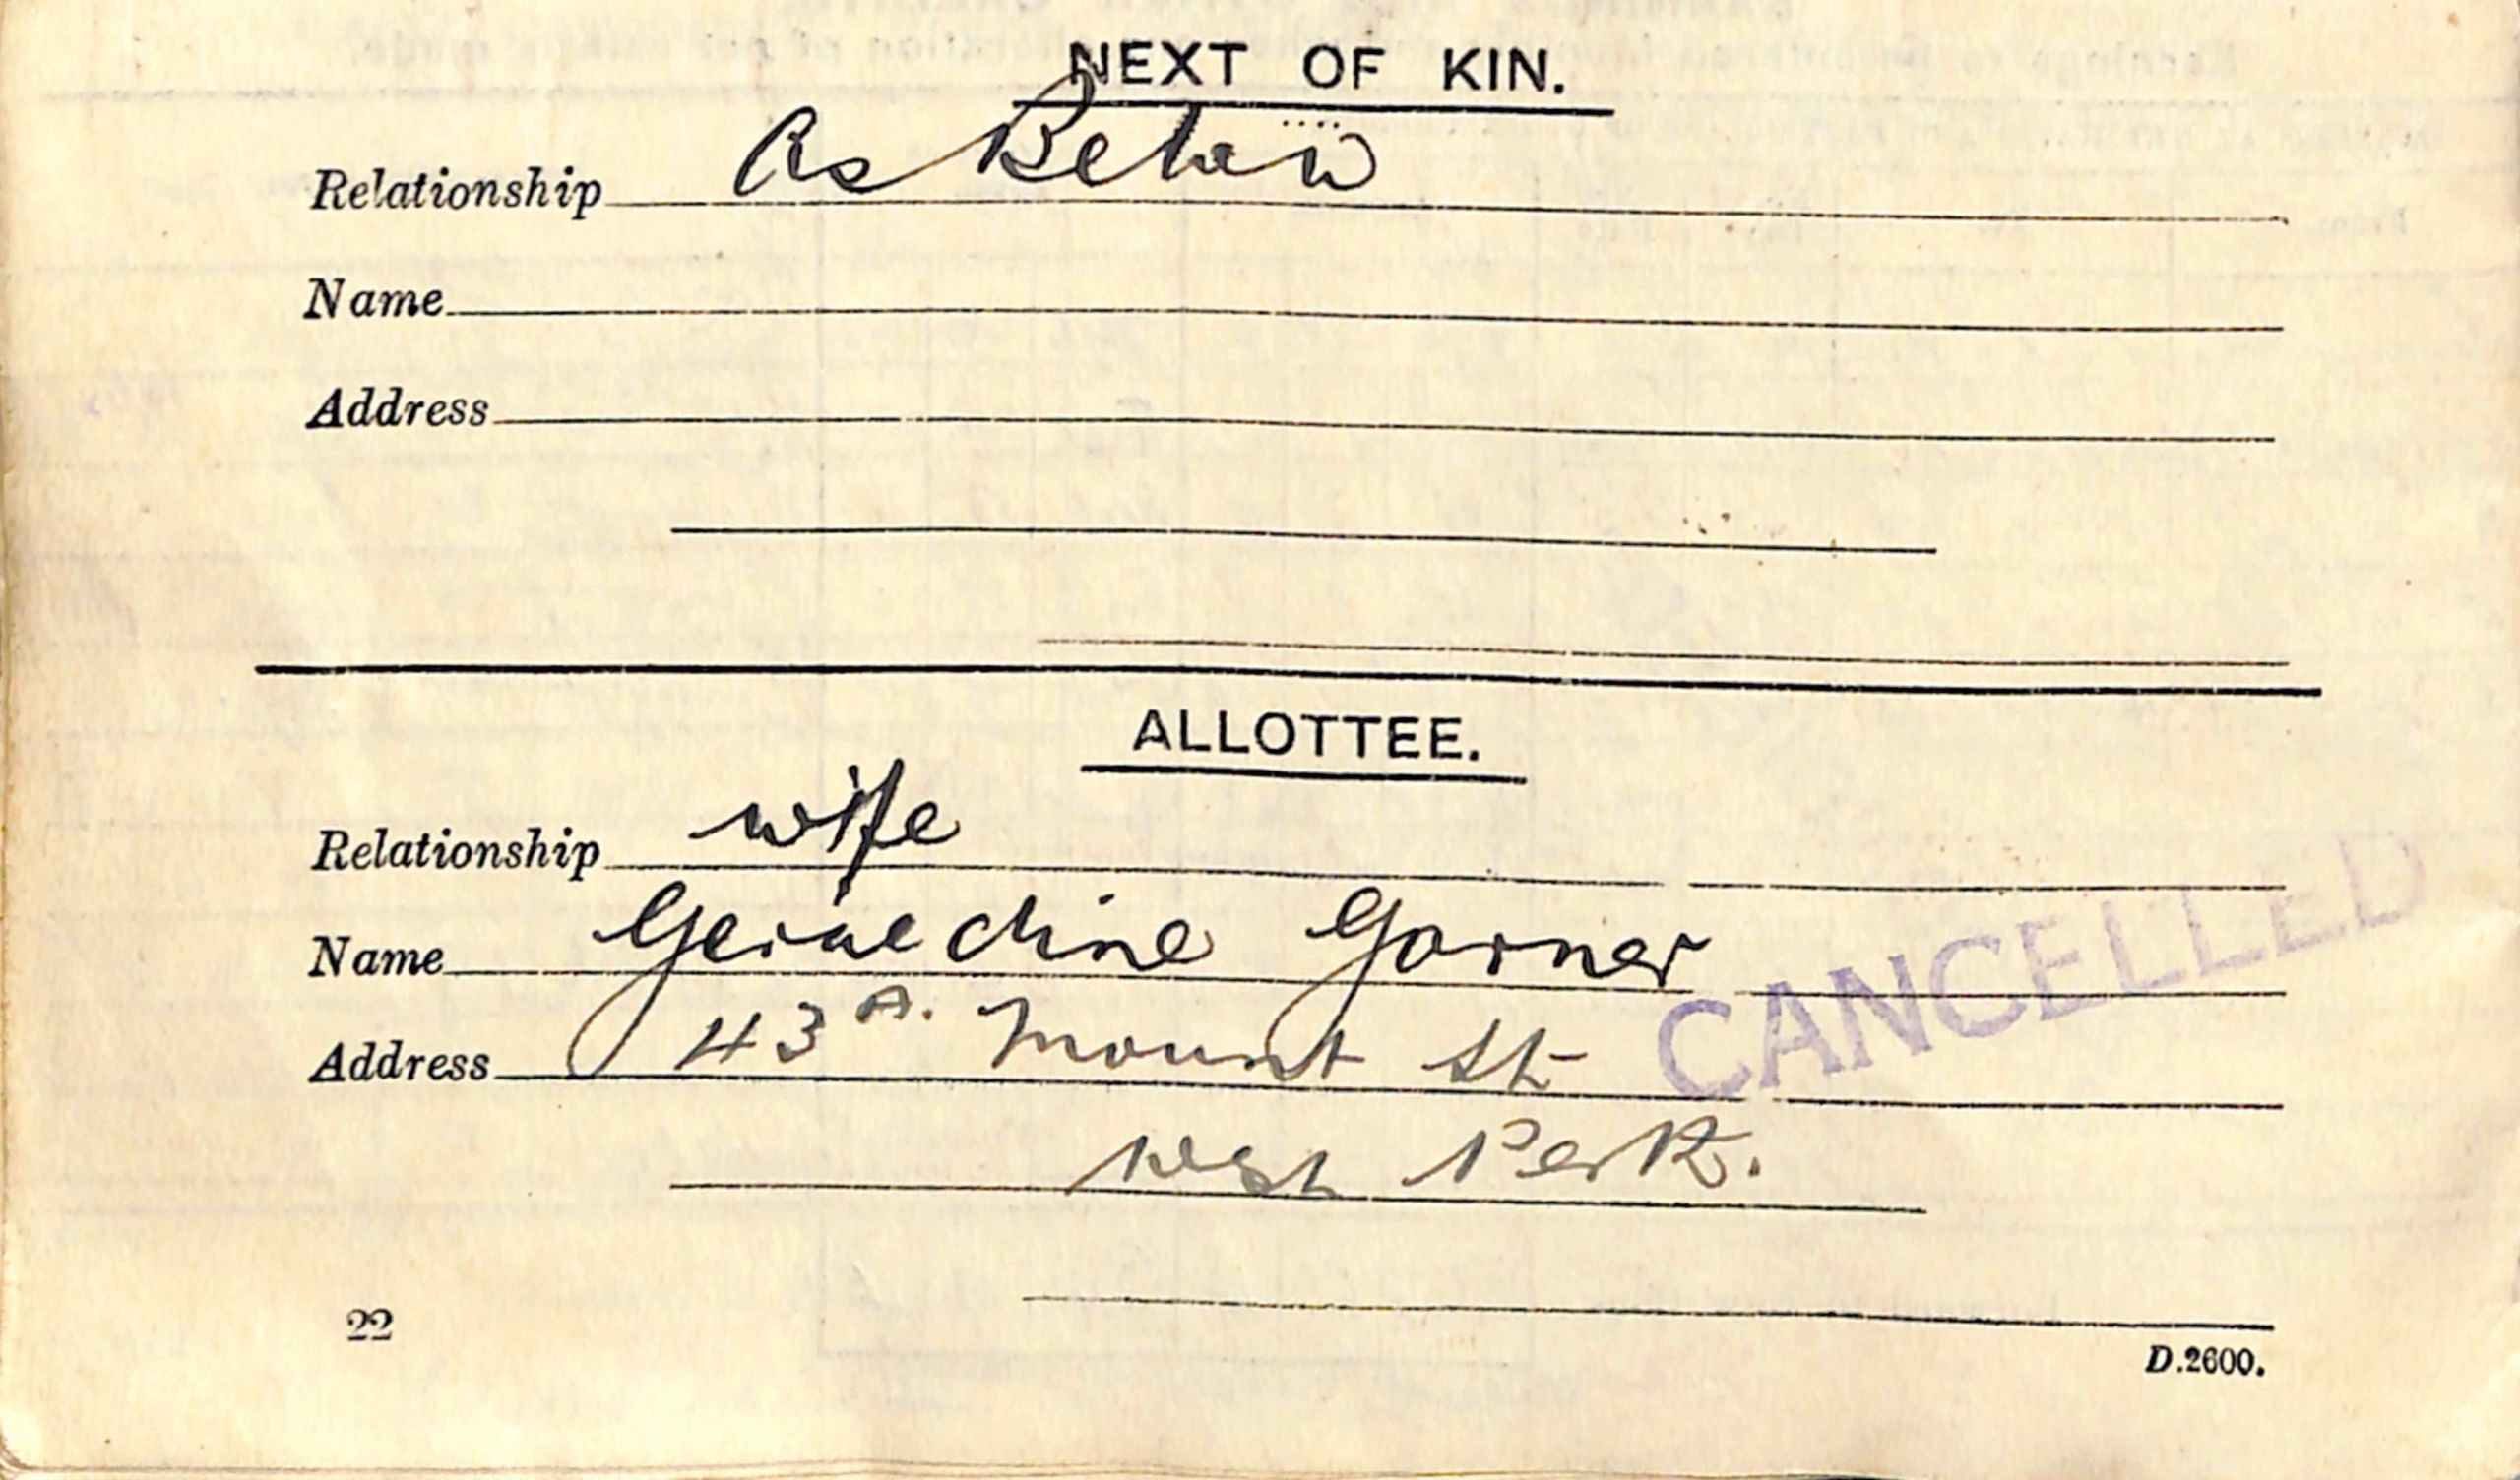 NEXT OF KIN.
Relationship As Below
Name
Address
ALLOTTEE.
Relationship wife
Name Geraldine Gorner
Address 43 A. Mount St
West Perth.
CANCELLED
22
D.2600.